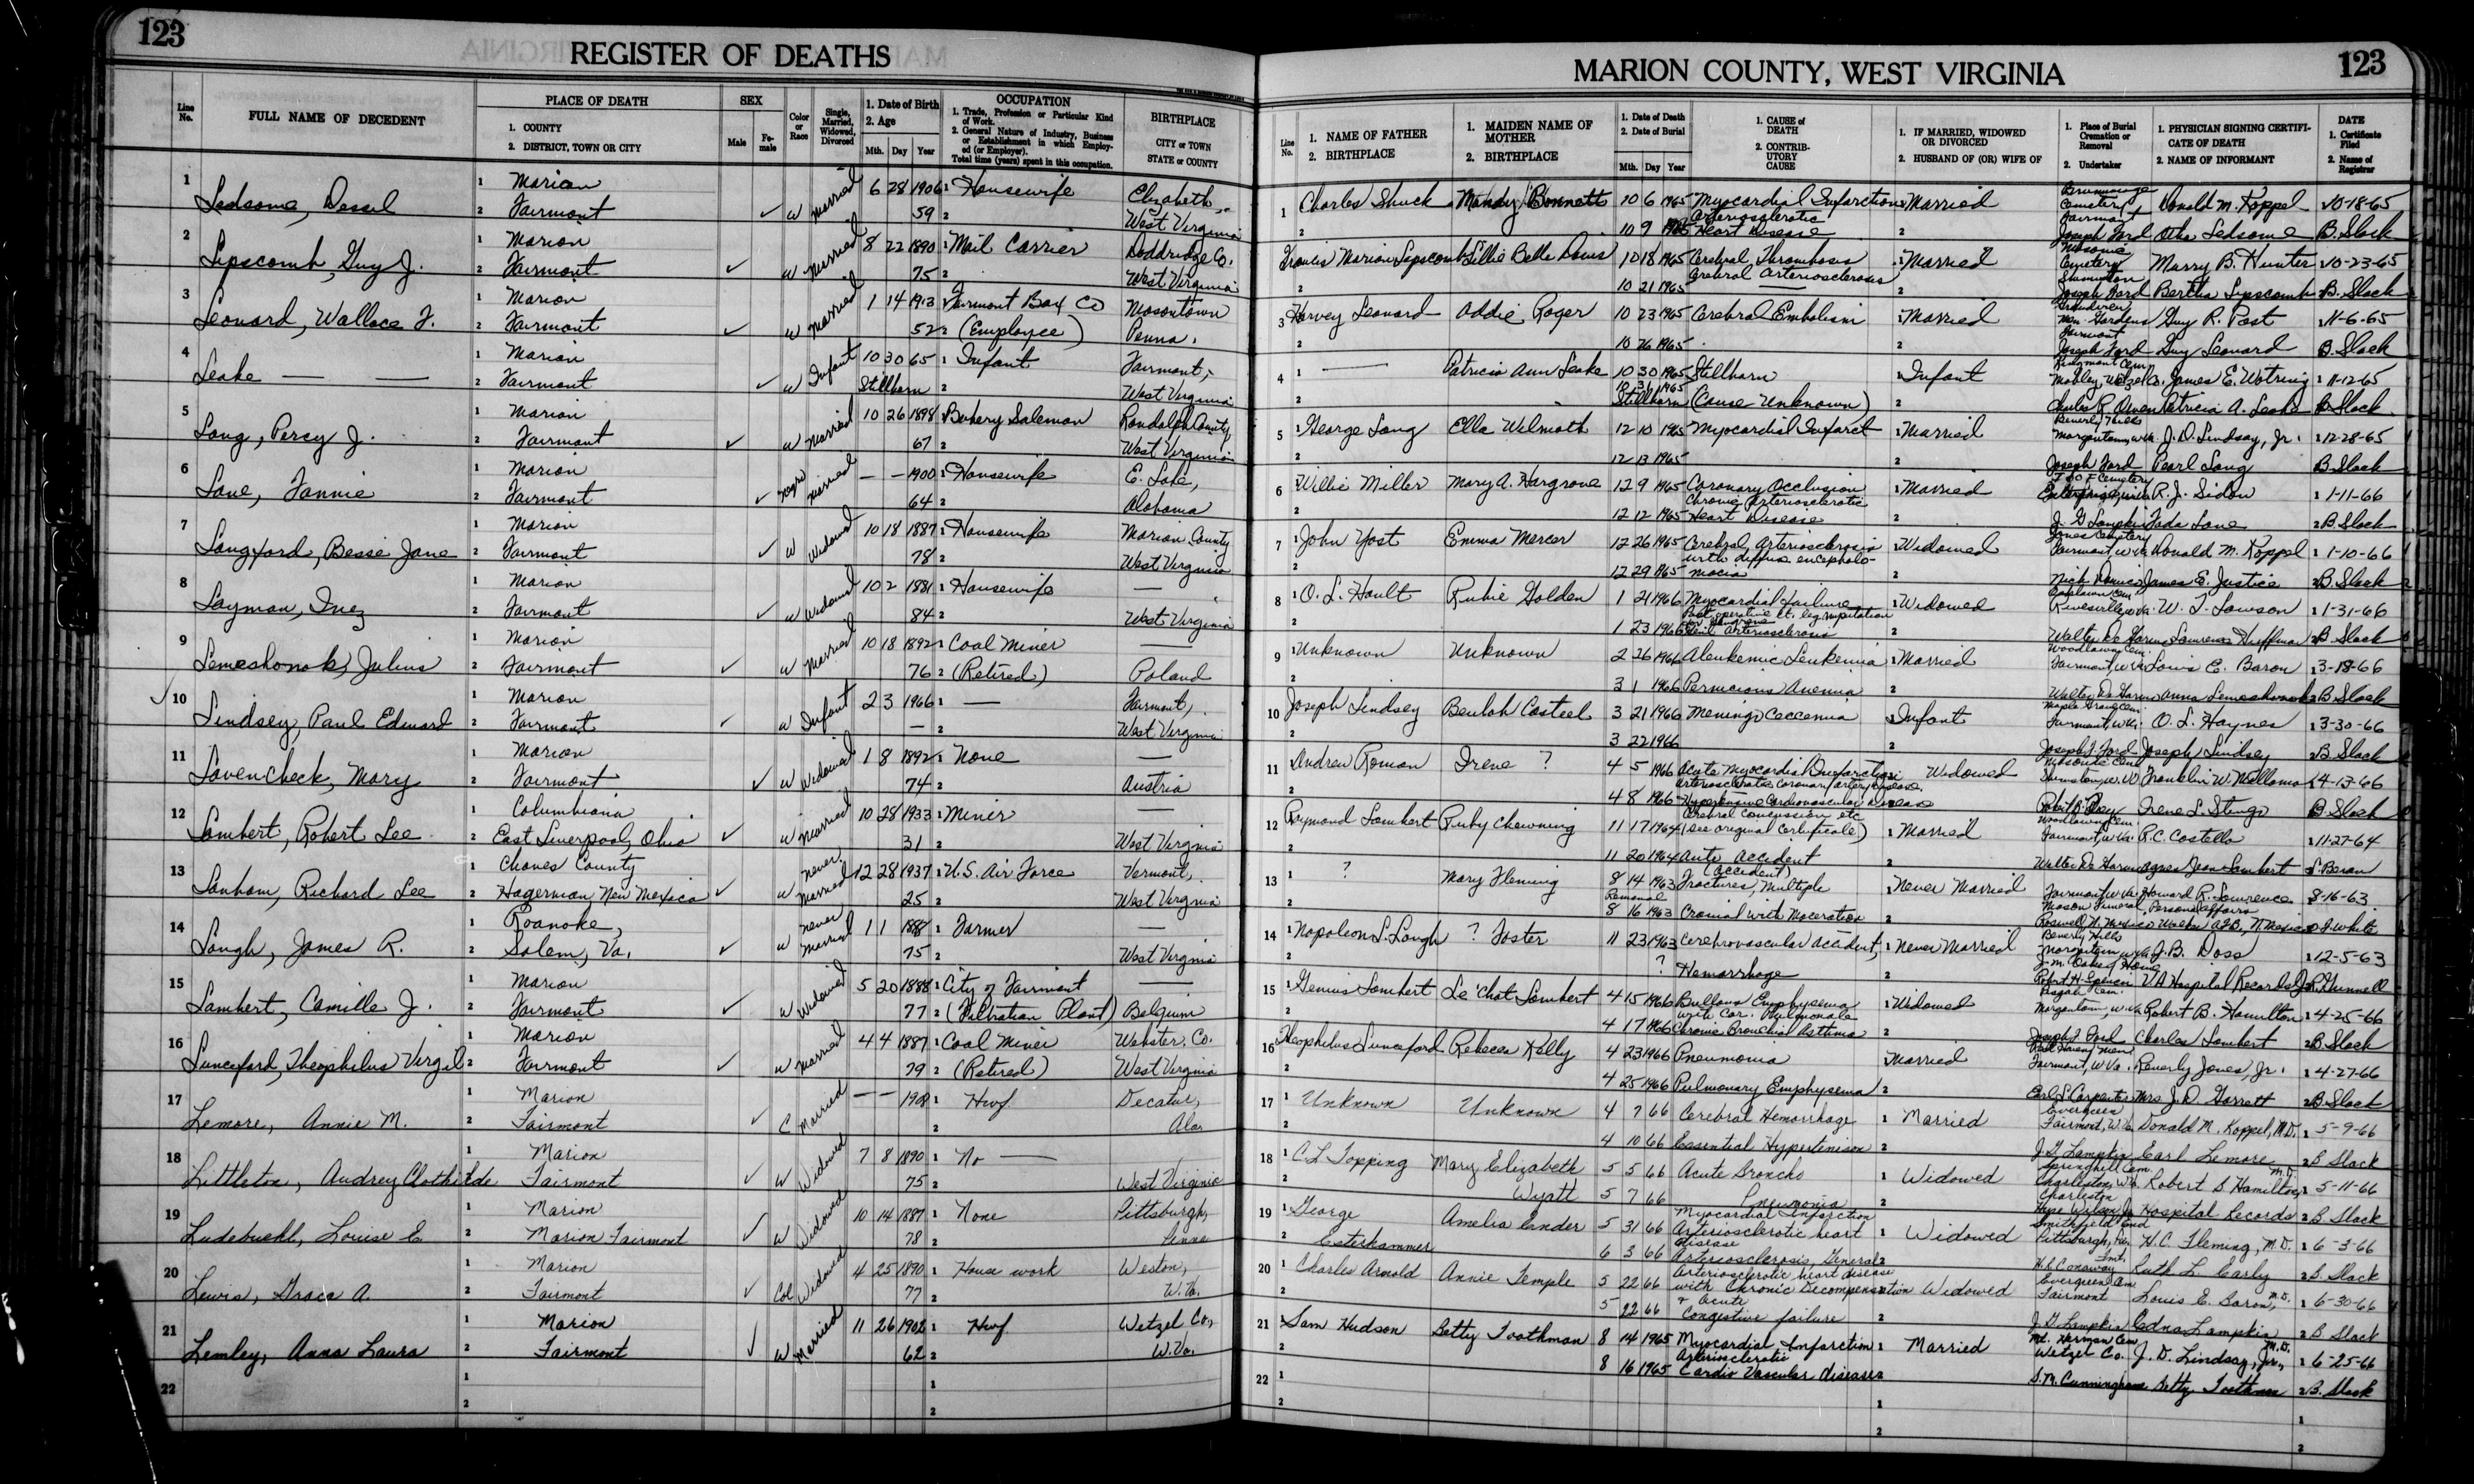 123
REGISTER OF DEATHS
Line No.
FULL NAME OF DECEDENT
PLACE OF DEATH
1. COUNTY
2. DISTRICT, TOWN OR CITY
SEX
Male
Female
Color or Race
Single, Married, Widowed, Divorced
1. Date of Birth
2. Age
Mth. Day Year
OCCUPATION
1. Trade, Profession or Particular Kind of Work.
2. General Nature of Industry, Business or Establishment in which Employed (or Employer).
Total time (years) spent in this occupation.
BIRTHPLACE
CITY or TOWN
STATE or COUNTY
1 Ledsome, Dessel 1 Marion 2 Fairmont ✓ W Married 6 28 1906 59 Housewife Elizabeth, West Virginia
2 Lipscomb, Guy J. 1 Marion 2 Fairmont ✓ W Married 8 22 1890 75 Mail Carrier Doddridge Co. West Virginia
3 Leonard, Wallace F. 1 Marion 2 Fairmont ✓ W Married 1 14 1913 52 Fairmont Box Co (Employee) Masontown Penna.
4 Leake 1 Marion 2 Fairmont ✓ W Infant 10 30 65 Stillborn Infant Fairmont, West Virginia
5 Long, Percy J. 1 Marion 2 Fairmont ✓ W Married 10 26 1898 67 Bakery Salesman Randolph County, West Virginia
6 Lane, Fannie 1 Marion 2 Fairmont ✓ Negro Married – – 1900 64 Housewife E. Lake, Alabama
7 Langford, Bessie Jane 1 Marion 2 Fairmont ✓ W Widowed 10 18 1887 78 Housewife Marion County West Virginia
8 Layman, Inez 1 Marion 2 Fairmont ✓ W Widowed 10 2 1881 84 Housewife — West Virginia
9 Lemeshonok, Julius 1 Marion 2 Fairmont ✓ W Married 10 18 1892 76 Coal Miner (Retired) — Poland
✓ 10 Lindsey, Paul Edward 1 Marion 2 Fairmont ✓ W Infant 2 3 1966 — Fairmont, West Virginia
11 Lovencheck, Mary 1 Marion 2 Fairmont ✓ W Widowed 1 8 1892 74 None — Austria
12 Lambert, Robert Lee 1 Columbiana 2 East Liverpool, Ohio ✓ W Married 10 28 1933 31 Miner — West Virginia
13 Lanham, Richard Lee 1 Chaves County 2 Hagerman, New Mexico ✓ W never married 12 28 1937 25 U.S. Air Force Vermont, West Virginia
14 Lough, James R. 1 Roanoke, 2 Salem, Va. ✓ W never married 1 1 1888 75 Farmer — West Virginia
15 Lambert, Camille J. 1 Marion 2 Fairmont ✓ W Widowed 5 20 1888 77 City of Fairmont (Filtration Plant) — Belgium
16 Lunceford, Theophilus Virgil 1 Marion 2 Fairmont ✓ W Married 4 4 1887 79 Coal Miner (Retired) Webster, Co. West Virginia
17 Lemore, Annie M. 1 Marion 2 Fairmont ✓ C Married – – Hwf Decatur, Ala.
18 Littleton, Audrey Clothilde 1 Marion 2 Fairmont ✓ W Widowed 7 8 1890 75 No — West Virginia
19 Ludebuehl, Louise E 1 Marion 2 Marion Fairmont ✓ W Widowed 10 14 1887 78 None Pittsburgh, Penna
20 Lewis, Grace A. 1 Marion 2 Fairmont ✓ Col Widowed 4 25 1890 77 House work Weston, W. Va.
21 Lemley, Anna Laura 1 Marion 2 Fairmont ✓ W Married 11 26 1902 62 Hwf Wetzel Co., W. Va.
22
123
MARION COUNTY, WEST VIRGINIA
Line No.
1. NAME OF FATHER
2. BIRTHPLACE
1. MAIDEN NAME OF MOTHER
2. BIRTHPLACE
1. Date of Death
2. Date of Burial
Mth. Day Year
1. CAUSE of DEATH
2. CONTRIBUTORY CAUSE
1. IF MARRIED, WIDOWED OR DIVORCED
2. HUSBAND OF (OR) WIFE OF
1. Place of Burial Cremation or Removal
2. Undertaker
1. PHYSICIAN SIGNING CERTIFICATE OF DEATH
2. NAME OF INFORMANT
DATE
1. Certificate Filed
2. Name of Registrar
1 Charles Shuck Mandy Bonnett 10 6 1965 10 9 1965 Myocardial Infarction Arteriosclerotic Heart Disease Married Cemetery Fairmont Joseph Ford Donald M. Koppel Otha Ledsome 10-18-65 B. Slack
2 Francis Marion Lipscomb Lillie Belle Davis 10 18 1965 10 21 1965 Cerebral Thrombosis Cerebral Arteriosclerosis Married Masonic Cemetery Shinnston Joseph Ford Murry B. Hunter Bertha Lipscomb 10-23-65 B. Slack
3 Harvey Leonard Addie Roger 10 23 1965 10 26 1965 Cerebral Embolism Married Grandview Mem. Gardens Fairmont Joseph Ford Guy R. Post Guy Leonard 11-6-65 B. Slack
4 — Patricia Ann Leake 10 30 1965 10 31 1965 Stillborn Stillborn (Cause Unknown) Infant Kingmont Cem. Mobley, Wetzel Co. Charles R. Owen James E. Wotring Patricia A. Leake 11-12-65 B. Slack
5 George Long Ella Wilmoth 12 10 1965 12 13 1965 Myocardial Infarct Married Beverly Hills Morgantown, W.Va. Joseph Ford J. D. Lindsay, Jr. Pearl Long 12-28-65 B. Slack
6 Willie Miller Mary A. Hargrove 12 9 1965 12 12 1965 Coronary Occlusion Chronic Arteriosclerotic Heart Disease Married IOOF Cemetery Enterprise, W.Va. J. G. Lampkin R. J. Sidow Fada Lane 1-11-66 B. Slack
7 John Yost Emma Mercer 12 26 1965 12 29 1965 Cerebral Arteriosclerosis with diffuse encephalomacia Widowed Jones Cemetery Fairmont, W.Va. Donald M. Koppel James E. Justice 1-10-66 B. Slack
8 O. L. Hoult Rubie Golden 1 21 1966 1 23 1966 Myocardial failure Post operative lt. leg amputation for Gangrene Arteriosclerosis Widowed Rivesville, W.Va. W. T. Lawson Lawrence Huffman 1-31-66 B. Slack
9 Unknown Unknown 2 26 1966 3 1 1966 Aleukemic Leukemia Pernicious Anemia Married Woodlawn Cem. Fairmont, W.Va. Louis E. Baron Anna Lemeshonok 3-18-66 B. Slack
10 Joseph Lindsey Beulah Casteel 3 21 1966 3 22 1966 Meningo Coccemia Infant Maple Grove Cem. Fairmont, W.Va. Joseph F. Ford O. L. Haynes Joseph Lindsey 3-30-66 B. Slack
11 Andrew Roman Irene ? 4 5 1966 4 8 1966 Acute Myocardial Infarction Arteriosclerotic Coronary Artery Disease Hypertensive Cardiovascular Disease Widowed Masonic Cem. Shinnston, W. Va Franklin W. Mallamo Irene L. Stingo 4-13-66 B. Slack
12 Raymond Lambert Ruby Chewning 11 17 1964 11 20 1964 Cerebral Concussion etc (see original Certificate) Auto Accident Married Woodlawn Cem. Fairmont, W.Va. R.C. Costello Agnes Jean Lambert 11-27-64
13 ? Mary Fleming 8 14 1963 Removal 8 16 1963 (Accident) Fractures, Multiple Cranial with Maceration Never Married Fairmont, W.Va. Mason Funeral Roswell, N. Mexico Howard R. Lawrence Personal affairs Walker AFB, N. Mexico 8-16-63
14 Napoleon S. Lough ? Foster 11 23 1963 ? Cerebrovascular accident, Hemorrhage Never Married Beverly Hills Morgantown, W.Va J.B. Doss VA Hospital Records 12-5-63
15 Genius Lambert Le Chat Lambert 4 15 1966 4 17 1966 Bullous Emphysema with Cor. Pulmonale Chronic Bronchial Asthma Widowed Morgantown, W.Va. Joseph F. Ford Robert B. Hamilton Charles Lambert 4-25-66 B. Slack
16 Theophilus Lunceford Rebecca Kelly 4 23 1966 4 25 1966 Pneumonia Pulmonary Emphysema Married Fairmont, W.Va. Earl S. Carpenter Beverly Jones, Jr. Mrs J. D. Garrett 4-27-66 B. Slack
17 Unknown Unknown 4 7 66 4 10 66 Cerebral Hemorrhage Essential Hypertension Married Evergreen Fairmont, W.Va. J. G. Lampkin Donald M. Koppel, M.D. Earl Lemore 5-9-66 B. Slack
18 C. L. Topping Mary Elizabeth Wyatt 5 5 66 5 7 66 Acute Broncho Pneumonia Widowed Springhill Cem. Charleston, W.Va. Charleston Robert S Hamilton, M.D. Hospital Records 5-11-66 B. Slack
19 George Esterhammer Amelia Lander 5 31 66 6 3 66 Myocardial Infarction Arteriosclerotic heart disease Arteriosclerosis, General Widowed Smithfield Cem Pittsburgh, Pa. H. C. Fleming, M.D. Ruth L. Early 6-3-66 B. Slack
20 Charles Arnold Annie Temple 5 22 66 5 22 66 Arteriosclerotic heart disease with Chronic Decompensation & Acute Congestive failure Widowed Evergreen Cem. Fairmont J. G. Lampkin Louis E. Baron, M.D. Edna Lampkin 6-30-66 B. Slack
21 Sam Hudson Betty Toothman 8 14 1965 8 16 1965 Myocardial Infarction Arteriosclerotic Cardio Vascular disease Married Mt. Herman Cem. Wetzel Co. S. M. Cunningham J. D. Lindsay, Jr., M.D. Betty Toothman 6-25-66 B. Slack
22